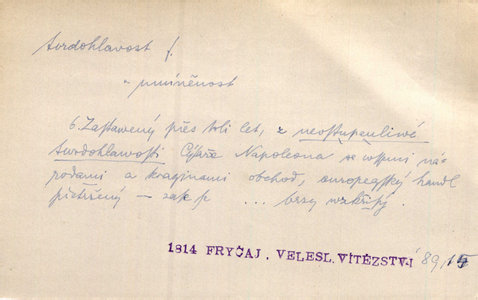 tvrdohlavost f.
umíněnost
6. Zastawený přes toli let, z neostupenliwé
twrdohlawosti Cýsaře Napoleona se wssmi ná-
rodami a kraginami obchod, europegský handl
přetržený — zase p ... brzy wzkřjsý.
1814 FRYČAJ, VELESL. VÍTĚZSTVÍ 89,15